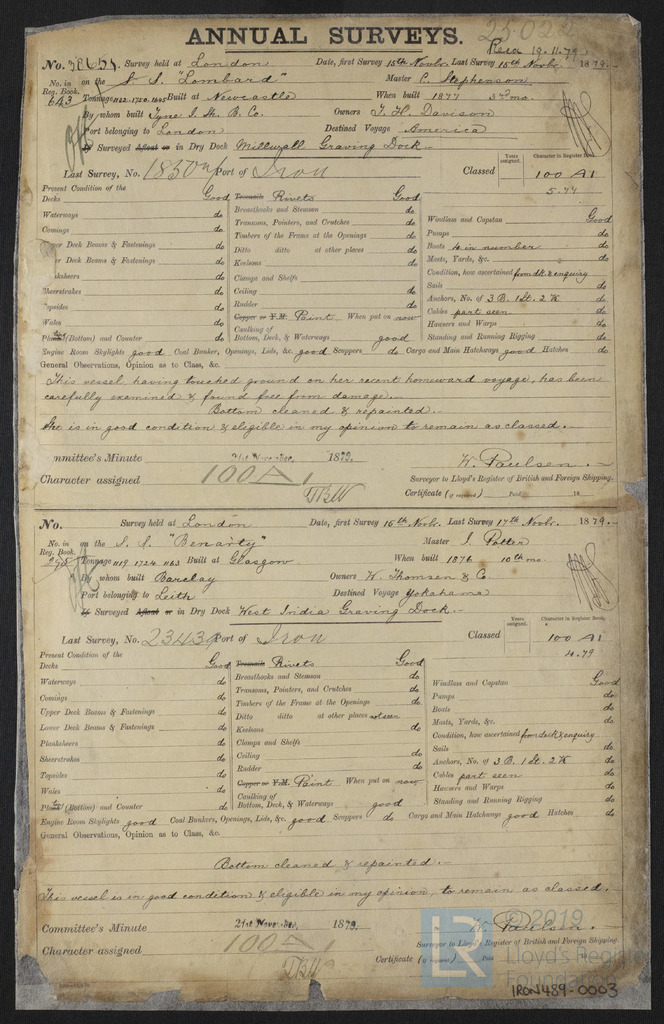 ANNUAL SURVEYS.
Recd 19.11.79
No. Survey held at London Date, first Survey 15th Novbr. Last Survey 15th Novbr. 1879.
No. in on the S. S. "Lombard" Master C. Stephenson
Reg. Book.
643 Tonnage Built at Newcastle When built 1877 3rd mo.
By whom built Tyne I. Sh. B. Co. Owners J. H. Davison
Port belonging to London Destined Voyage America
If Surveyed Afloat or in Dry Dock Millwall Graving Dock
Last Survey, No. 1830 Port of Iron Classed Years assigned. Character in Register Book.
100 A1
5.77
Present Condition of the
Decks Good Treenails Rivets Good
Waterways do Breasthooks and Stemson do Windlass and Capstan Good
Comings do Transoms, Pointers, and Crutches do Pumps do
Upper Deck Beams & Fastenings do Timbers of the Frame at the Openings do Boats 4 in number do
Lower Deck Beams & Fastenings do Ditto ditto at other places do Masts, Yards, &c. do
Planksheers do Keelsons do Condition, how ascertained from dk. & enquiry
Sheerstrakes do Clamps and Shelfs do Sails do
Topsides do Ceiling do Anchors, No. of 3 B. 1 St. 2 K do
Wales do Rudder do Cables part seen do
Copper or Y.M. Paint When put on now Hawsers and Warps do
Plank (Bottom) and Counter do Caulking of Bottom, Deck, & Waterways good Standing and Running Rigging do
Engine Room Skylights good Coal Bunker, Openings, Lids, &c. good Scuppers do Cargo and Main Hatchways good Hatches do
General Observations, Opinion as to Class, &c.
This vessel having touched ground on her recent homeward voyage, has been
carefully examined & found free from damage.
Bottom cleaned & repainted.
She is in good condition & eligible in my opinion to remain as classed.
Committee's Minute 21st November, 1879. W. Paulsen.
Character assigned 100 A1 Surveyor to Lloyd's Register of British and Foreign Shipping.
Certificate (if required) Paid 18
No. Survey held at London Date, first Survey 15th Novbr. Last Survey 17th Novbr. 1879.
No. in on the S. S. "Benarty" Master J. Potter
Reg. Book.
295 Tonnage 1119 1724 1163 Built at Glasgow When built 1876 10th mo.
By whom built Barclay Owners W. Thomson & Co.
Port belonging to Leith Destined Voyage Yokahama
If Surveyed Afloat or in Dry Dock West India Graving Dock
Last Survey, No. 23439 Port of Iron Classed Years assigned. Character in Register Book.
100 A1
10.79
Present Condition of the
Decks Good Treenails Rivets Good
Waterways do Breasthooks and Stemson do Windlass and Capstan Good
Comings do Transoms, Pointers, and Crutches do Pumps do
Upper Deck Beams & Fastenings do Timbers of the Frame at the Openings do Boats do
Lower Deck Beams & Fastenings do Ditto ditto at other places not seen Masts, Yards, &c. do
Planksheers do Keelsons do Condition, how ascertained from deck & enquiry
Sheerstrakes do Clamps and Shelfs Sails do
Topsides do Ceiling do Anchors, No. of 3 B. 1 St. 2 K do
Wales do Rudder do Cables part seen do
Copper or Y.M. Paint When put on now Hawsers and Warps do
Plank (Bottom) and Counter do Caulking of Bottom, Deck, & Waterways good Standing and Running Rigging do
Engine Room Skylights good Coal Bunker, Openings, Lids, &c. good Scuppers do Cargo and Main Hatchways good Hatches do
General Observations, Opinion as to Class, &c.
Bottom cleaned & repainted.
This vessel is in good condition & eligible in my opinion, to remain as classed.
Committee's Minute 21st November, 1879. W. Paulsen
Character assigned 100 A1 Surveyor to Lloyd's Register of British and Foreign Shipping.
Certificate (if required) Paid
LR
© 2019
Lloyd's Register
Foundation
IRON489-0003